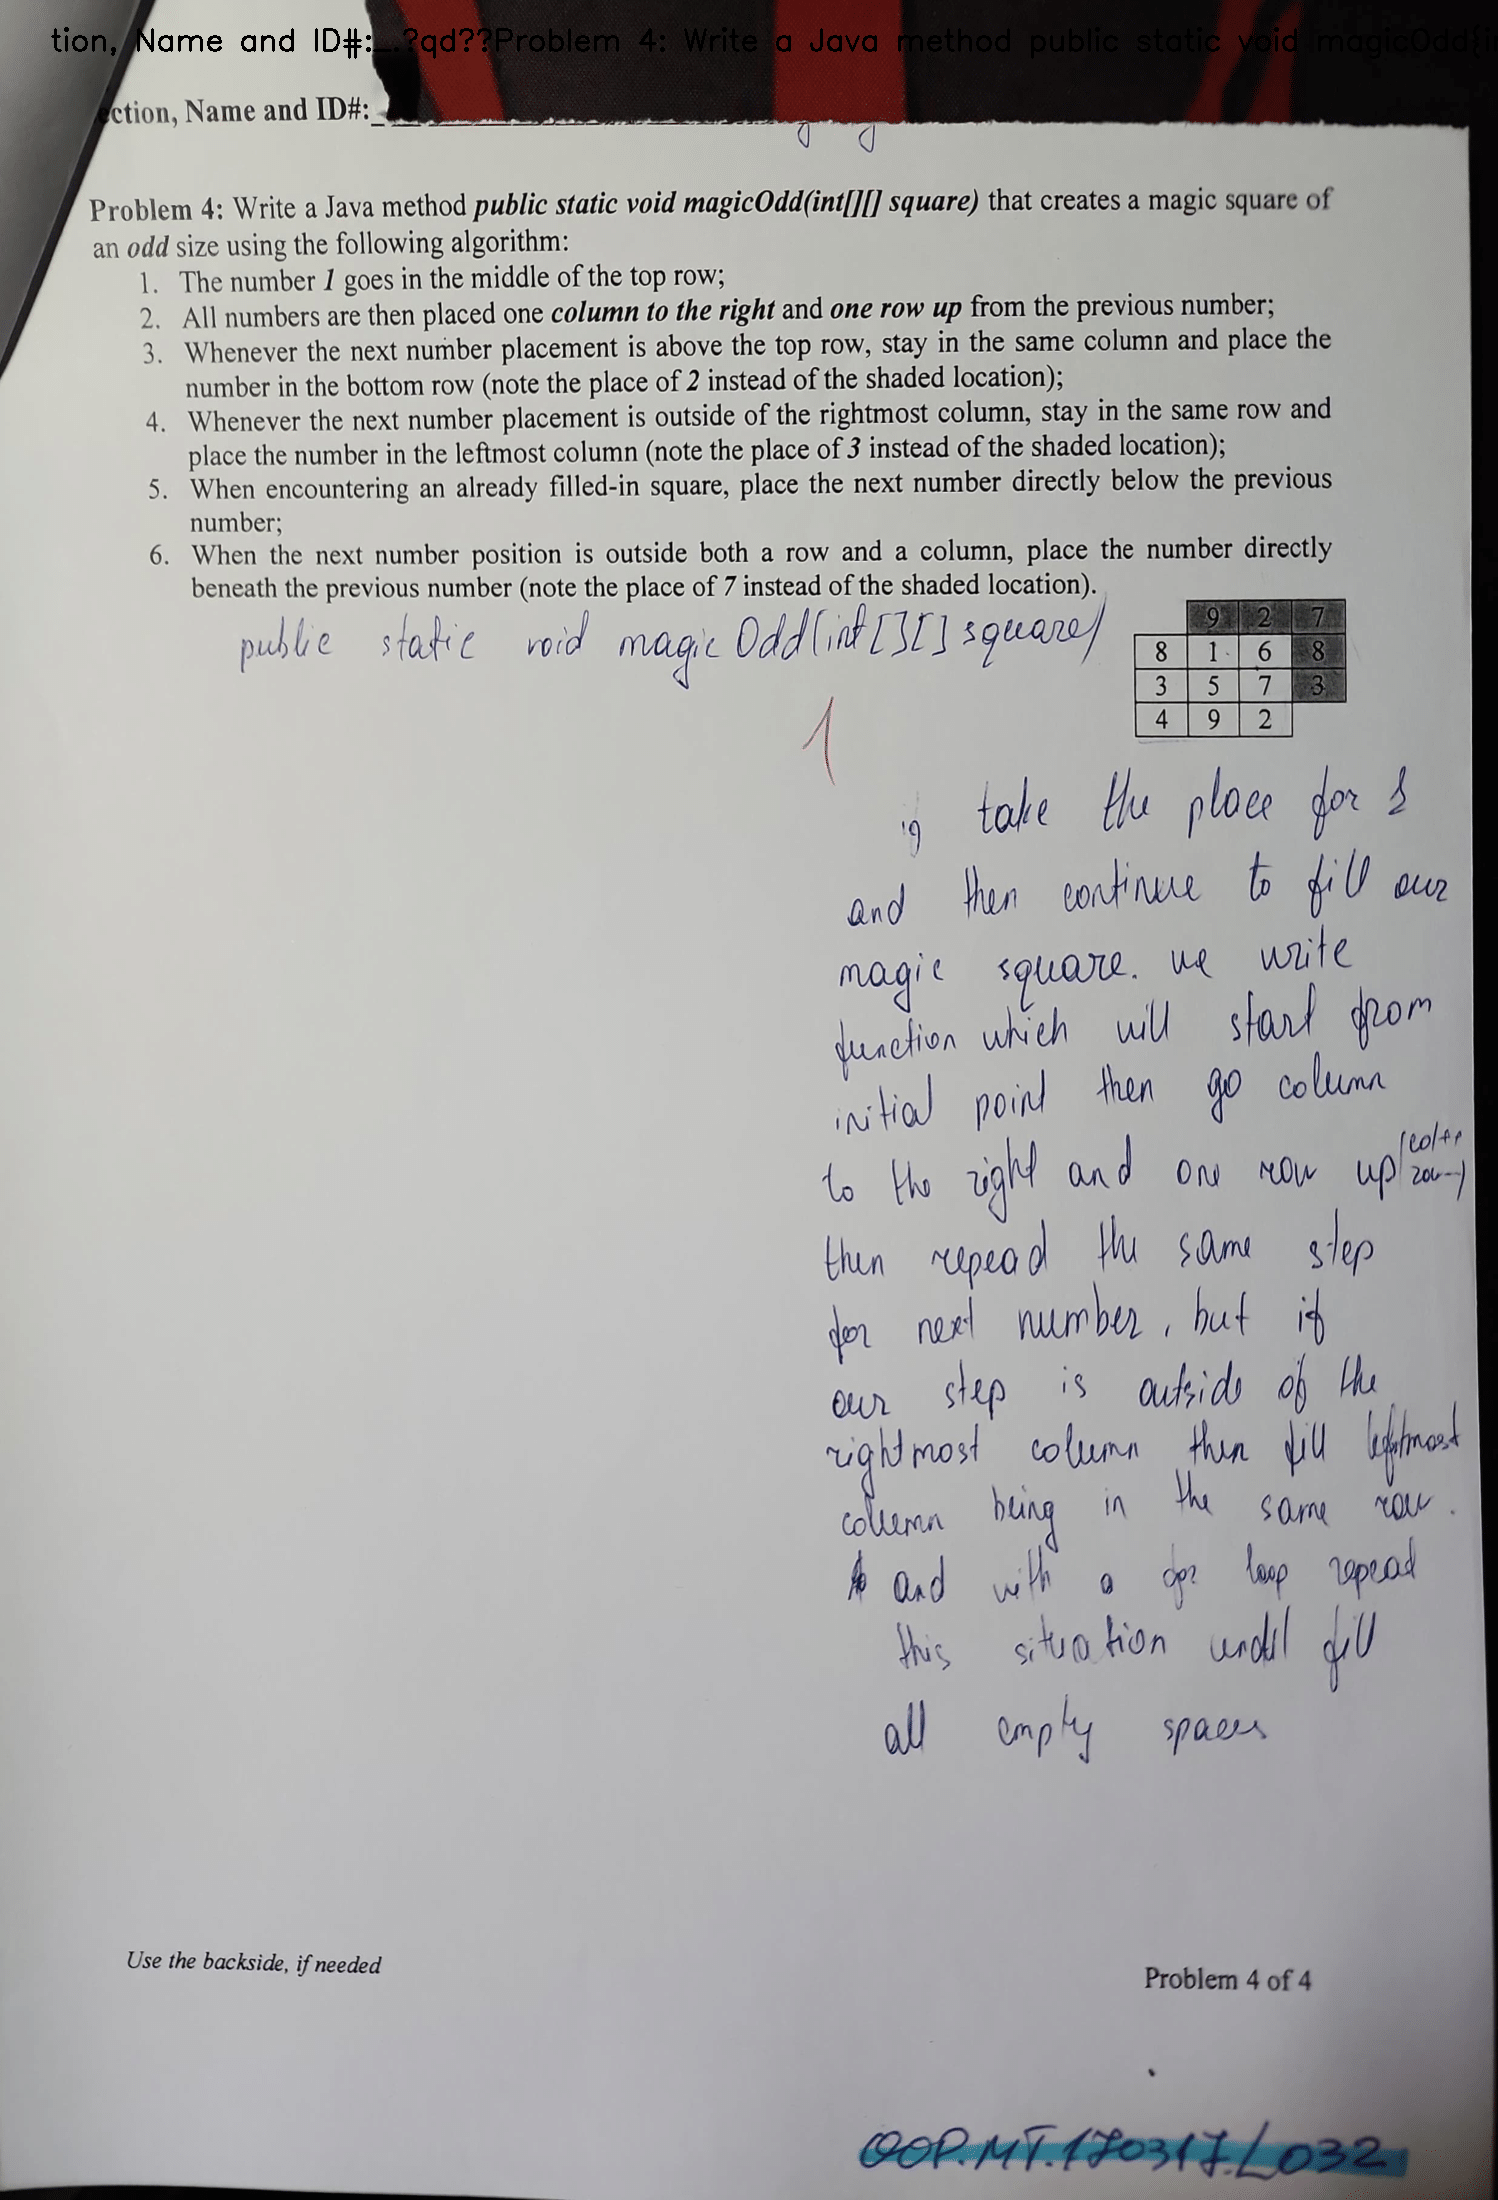 tion, Name and ID#:_.?qd??Problem 4: Write a Java method public static void magicOdd(i
ction, Name and ID#:
Problem 4: Write a Java method public static void magicOdd(int[][] square) that creates a magic square of
an odd size using the following algorithm:
1. The number 1 goes in the middle of the top row;
2. All numbers are then placed one column to the right and one row up from the previous number;
3. Whenever the next number placement is above the top row, stay in the same column and place the
number in the bottom row (note the place of 2 instead of the shaded location);
4. Whenever the next number placement is outside of the rightmost column, stay in the same row and
place the number in the leftmost column (note the place of 3 instead of the shaded location);
5. When encountering an already filled-in square, place the next number directly below the previous
number;
6. When the next number position is outside both a row and a column, place the number directly
beneath the previous number (note the place of 7 instead of the shaded location).
public static void magicOdd(int[][] square)
9 2 7
8 1 6 8
3 5 7 3
4 9 2
1
take the place for 1
and then continue to fill our
magic square. we write
function which will start from
initial point then go column
to the right and one row up (col++
row--)
then repead the same step
for next number, but if
our step is outside of the
rightmost column then fill leftmost
column being in the same row.
and with a for loop repead
this situation until fill
all empty spaces
Use the backside, if needed
Problem 4 of 4
OOP.MT.170317.L032